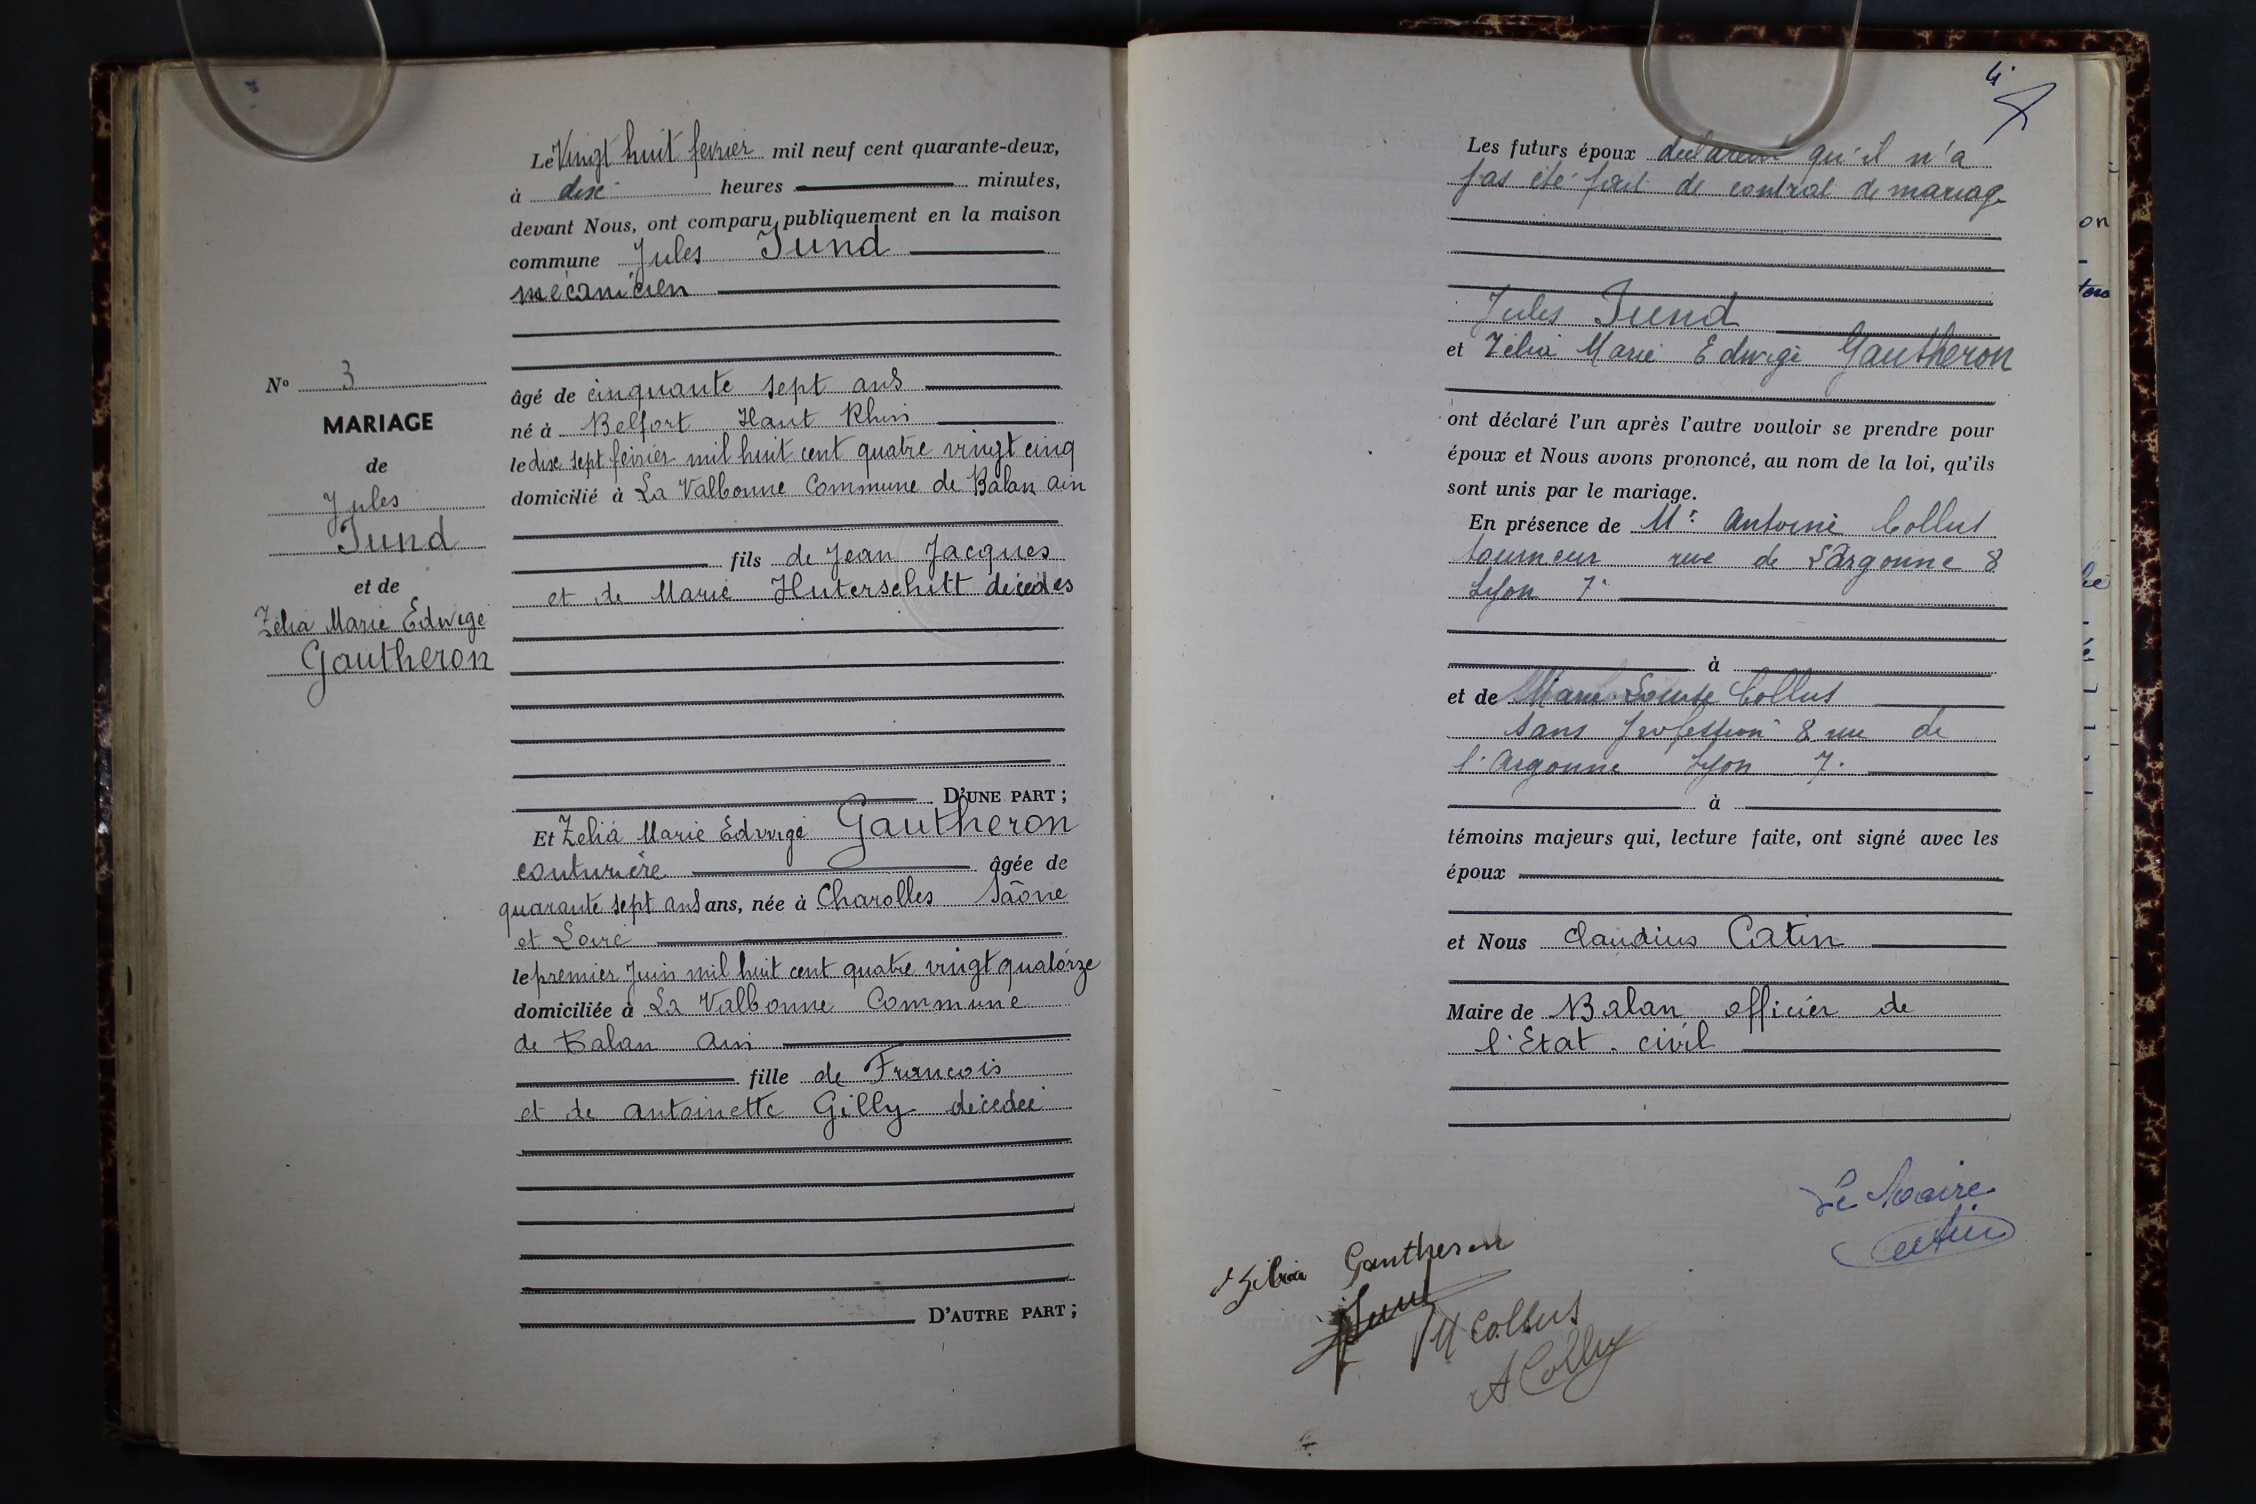 Le Vingt huit fevrier mil neuf cent quarante-deux,
à dix heures minutes,
devant Nous, ont comparu publiquement en la maison
commune Jules Jund
mécanicien
âgé de cinquante sept ans
né à Belfort Haut Rhin
le dix sept février mil huit cent quatre vingt cinq
domicilié à La Valbonne Commune de Balan ain
fils de Jean Jacques
et de Marie Huterschitt décédés
D'UNE PART ;
Et Zelia Marie Edwige Gautheron
couturière âgée de
quarante sept ans ans, née à Charolles Saône
et Loire
le premier Juin mil huit cent quatre vingt quatorze
domiciliée à La Valbonne Commune
de Balan Ain
fille de Francois
et de Antoinette Gilly décédée
D'AUTRE PART ;
Nº 3
MARIAGE
de
Jules
Jund
et de
Zélia Marie Edwige
Gautheron
4
Les futurs époux déclarent qu'il n'a
pas été fait de contrat de mariage
Jules Jund
et Zélia Marie Edwige Gautheron
ont déclaré l'un après l'autre vouloir se prendre pour
époux et Nous avons prononcé, au nom de la loi, qu'ils
sont unis par le mariage.
En présence de Mr Antoine Collut
tourneur rue de l'Argonne 8
Lyon 7
à
et de Marie Louise Collut
sans profession 8 rue de
l'Argonne Lyon 7
à
témoins majeurs qui, lecture faite, ont signé avec les
époux
et Nous Claudius Catin
Maire de Balan officier de
l'Etat civil
Le Maire
Catin
Zélia Gautheron
Jund
M Collut
A Collut
on